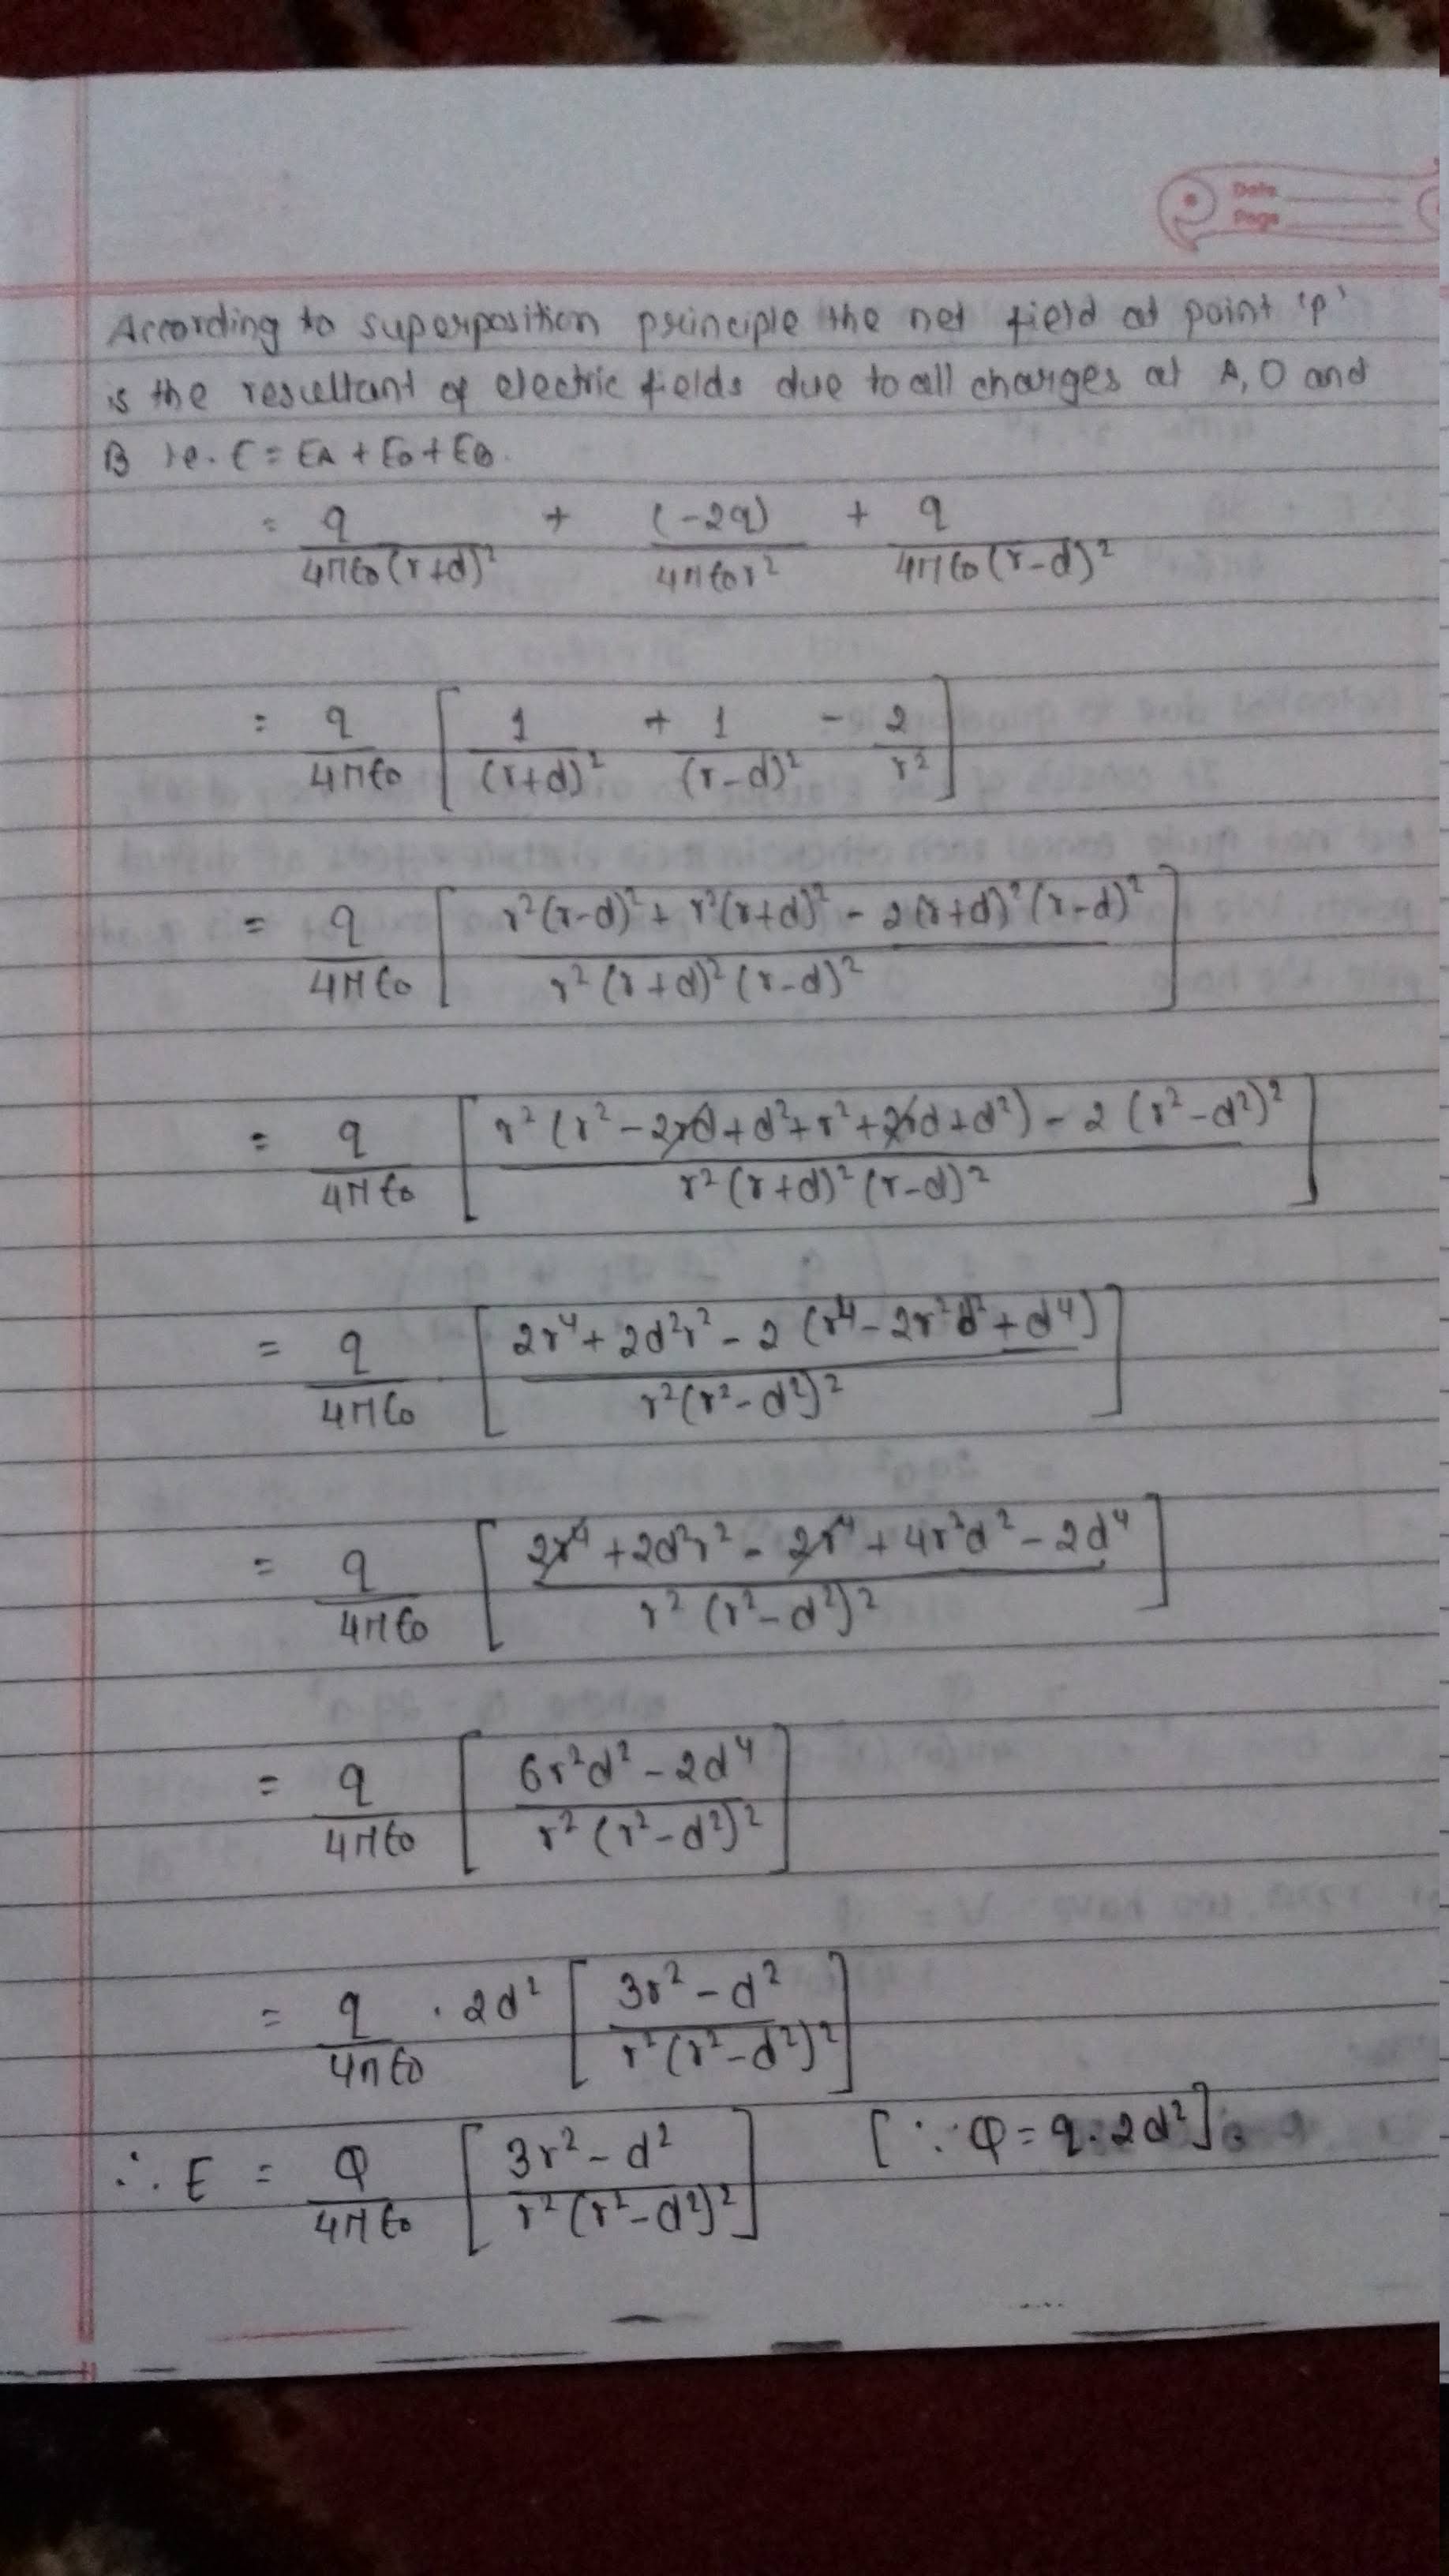 Date
Page
According to superposition principle the net field at point 'p'
is the resultant of electric fields due to all charges at A, O and
B i.e. E = EA + EO + EB.
= q/4πε0(r+d)² + (-2q)/4πε0r² + q/4πε0(r-d)²
= q/4πε0 [1/(r+d)² + 1/(r-d)² - 2/r²]
= q/4πε0 [r²(r-d)² + r²(r+d)² - 2(r+d)²(r-d)² / r²(r+d)²(r-d)²]
= q/4πε0 [r²(r² - 2rd + d² + r² + 2rd + d²) - 2(r²-d²)² / r²(r+d)²(r-d)²]
= q/4πε0 [2r⁴ + 2d²r² - 2(r⁴ - 2r²d² + d⁴) / r²(r²-d²)²]
= q/4πε0 [2r⁴ + 2d²r² - 2r⁴ + 4r²d² - 2d⁴ / r²(r²-d²)²]
= q/4πε0 [6r²d² - 2d⁴ / r²(r²-d²)²]
= q/4πε0 · 2d² [3r² - d² / r²(r²-d²)²]
∴ E = Q/4πε0 [3r² - d² / r²(r²-d²)²] [∵ Q = q·2d²]